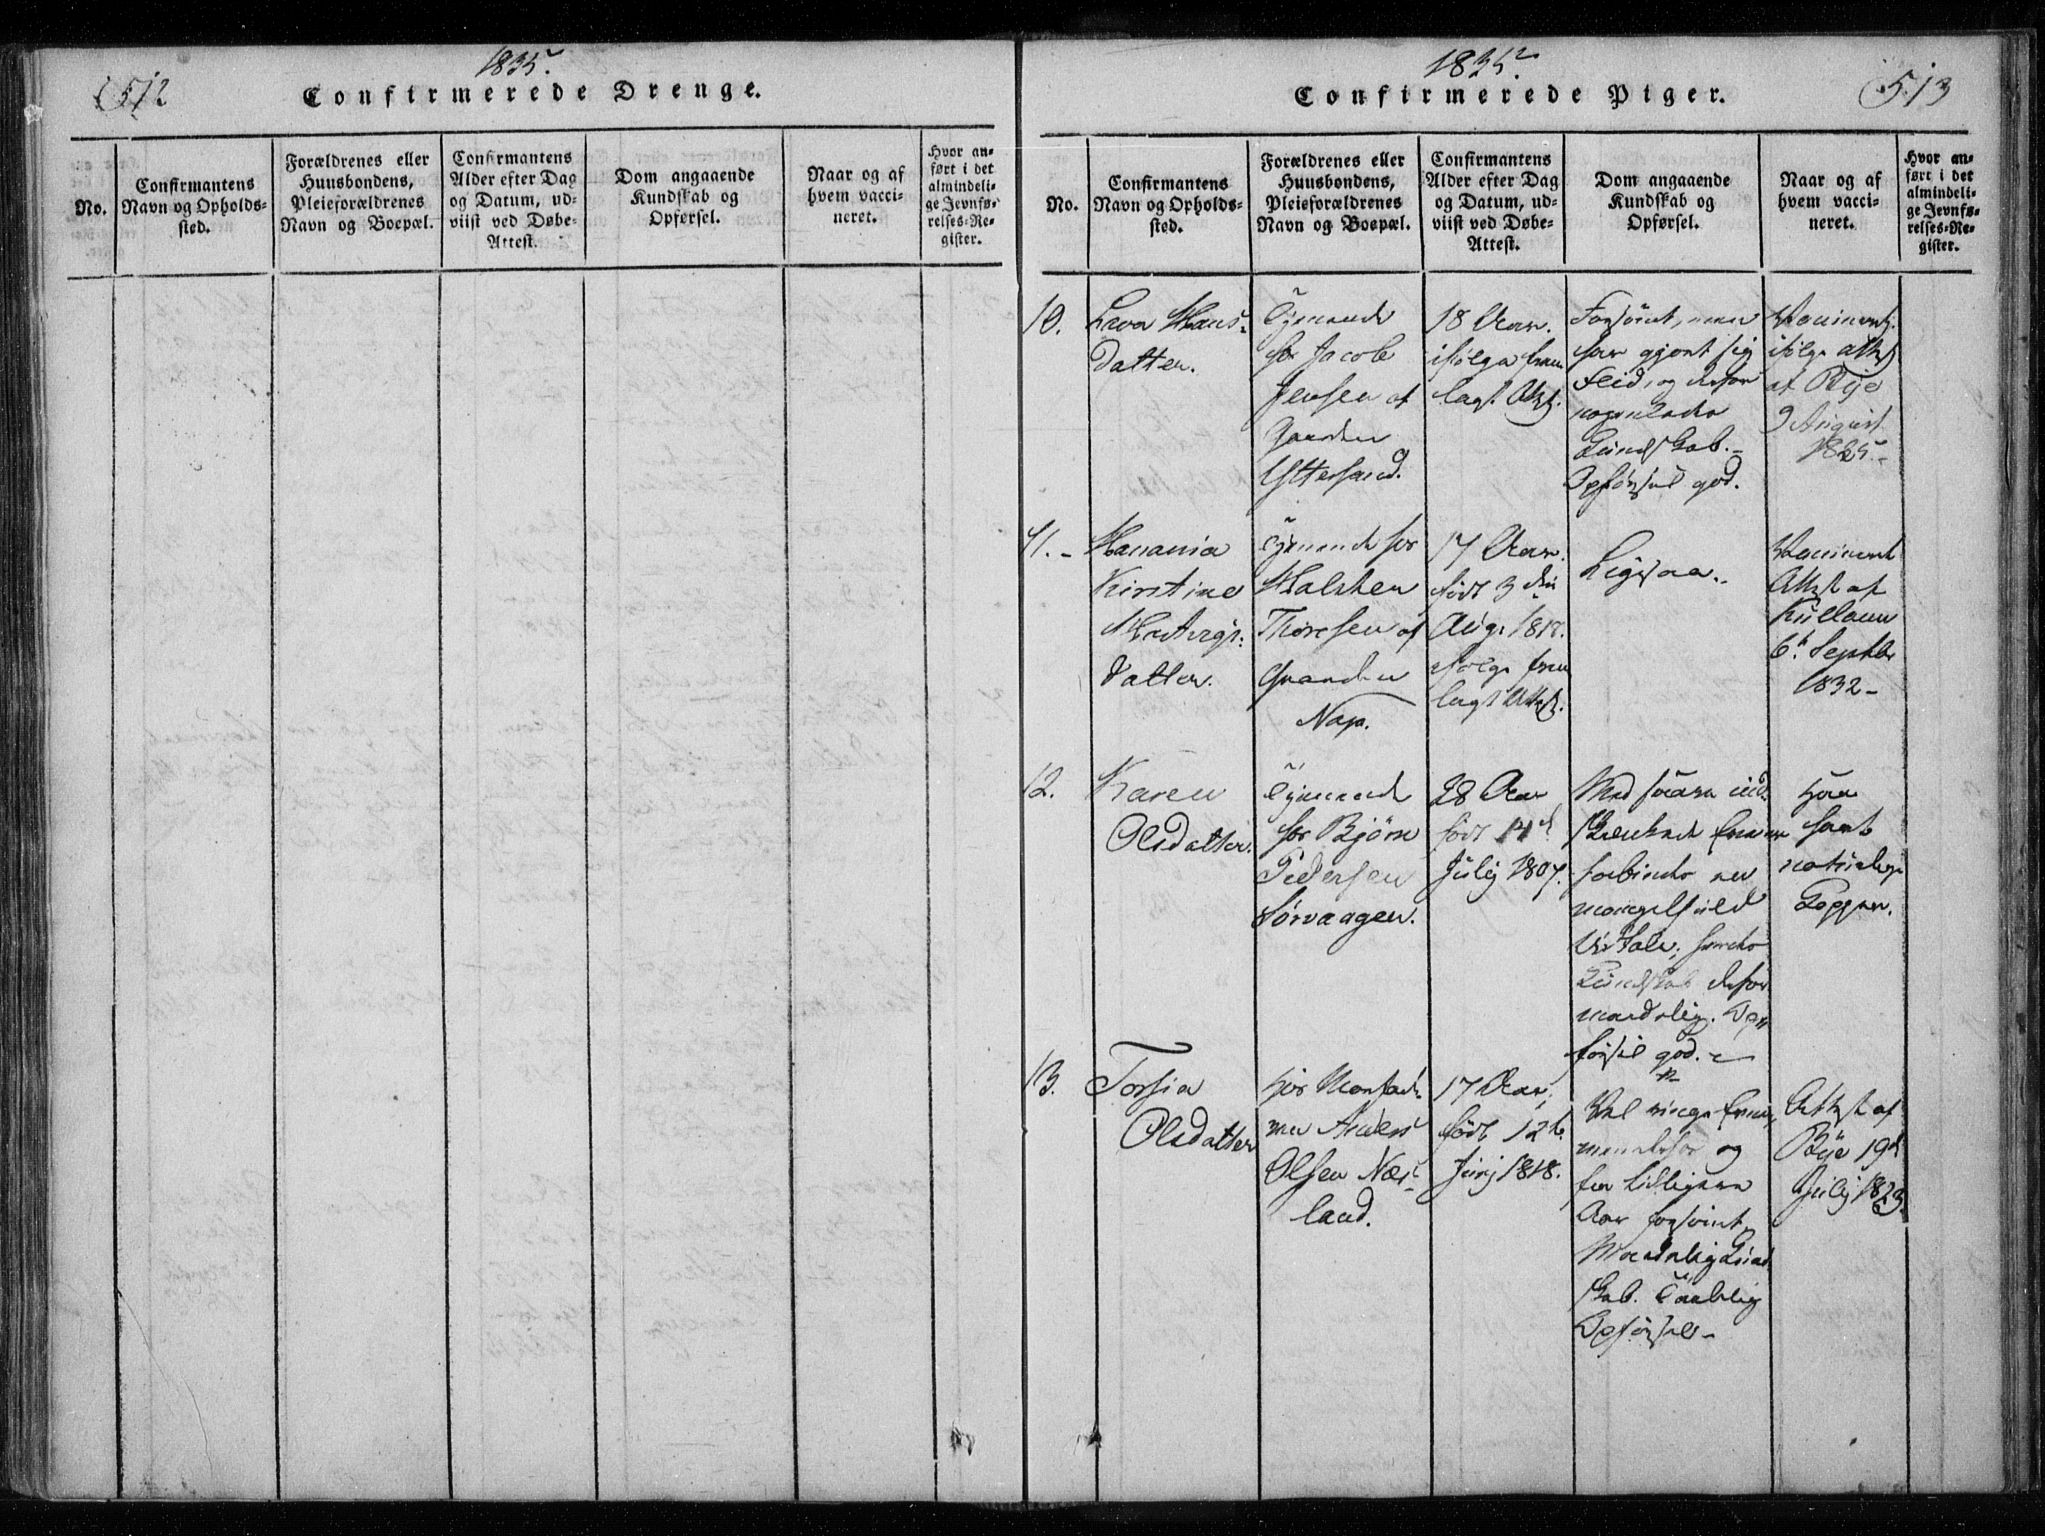 512
1835.
Confirmerede Drenge.
No.
Confirmantens
Navn og Opholds-
sted.
Forældrenes eller
Huusbondens,
Pleieforældrenes
Navn og Boepæl.
Confirmantens
Alder efter Dag
og Datum, ud-
viist ved Døbe-
Attest.
Dom angaaende
Kundskab og
Opførsel.
Naar og af
hvem vacci-
neret.
Hvor an-
ført i det
almindeli-
ge Jevnfø-
relses-Re-
gister.
1835.
513
Confirmerede Piger.
No.
Confirmantens
Navn og Opholds-
sted.
Forældrenes eller
Huusbondens,
Pleieforældrenes
Navn og Boepæl.
Confirmantens
Alder efter Dag
og Datum, ud-
viist ved Døbe-
Attest.
Dom angaaende
Kundskab og
Opførsel.
Naar og af
hvem vacci-
neret.
Hvor an-
ført i det
almindeli-
ge Jevnfø-
relses-Re-
gister.
10.
Hans-
datter.
Tjenende
hos Jacob
Jensen af
Gaarden
Yttersand.
18 Aar.
ifølge frem
lagt Attst.
Forsømt, men
har gjort sig
Fliid, og derfor
nogenledes
Kundskab.-
Opførsel god.
Vaccineret
ifølge Attst
af Bye
9 August
1825.-
11.-
Hanania
Kirstine
datter.
Tjenende hos
Halsten
Thoresen af
Gaarden
Nap.
17 Aar.
født 3die
Aug. 1818.
ifølge frem
lagt Attst.
Ligesaa.-
Vaccineret
Attst af
6t Septbr
1832-
12.
Karen
Olsdatter.
Tjenende
hos Bjørn
Pedersen
Sørvaagen.
28 Aar
født 14d
Julij 1807.
Med
forbinder en
mangelfuld
Kundskab derfor
maadelig. Op-
førsel god.-
Har
havt
naturlige
Kopper.
13.
Torsia
Olsdatter
Hos
Anders
Olsen Næs-
land.
17 Aar,
født 12te
Junj 1818.
og
fra tidligere
Aar forsømt,
Maadelig Kund
skab. Taalelig
Opførsel-
Attst af
Bye 19d
Julij 1823.